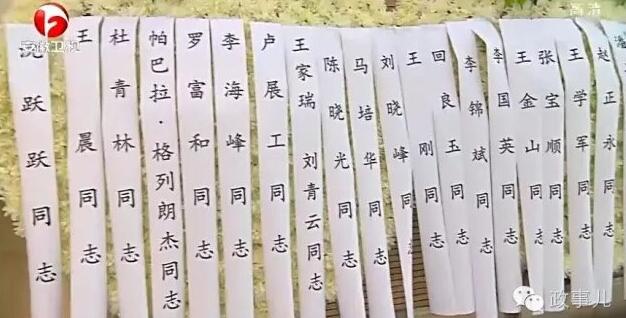 安徽卫视
高清
沈跃跃同志
王晨同志
杜青林同志
帕巴拉·格列朗杰同志
罗富和同志
李海峰同志
卢展工同志
王家瑞 刘青云同志
陈晓光同志
马培华同志
刘晓峰同志
王刚同志
回良玉同志
李锦斌同志
李国英同志
王金山同志
张宝顺同志
王学军同志
赵正永同志
政事儿